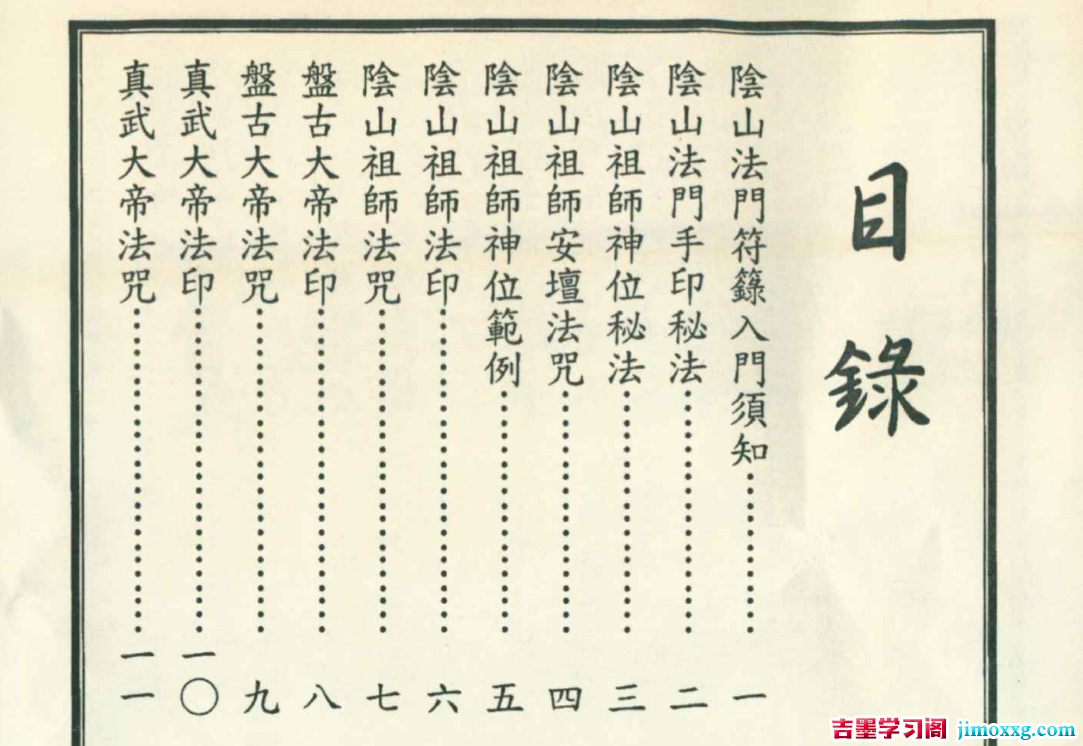 目錄
陰山法門符籙入門須知⋯⋯⋯⋯⋯⋯一
陰山法門手印秘法⋯⋯⋯⋯⋯⋯二
陰山祖師神位秘法⋯⋯⋯⋯⋯⋯三
陰山祖師安壇法咒⋯⋯⋯⋯⋯⋯四
陰山祖師神位範例⋯⋯⋯⋯⋯⋯五
陰山祖師法印⋯⋯⋯⋯⋯⋯六
陰山祖師法咒⋯⋯⋯⋯⋯⋯七
盤古大帝法印⋯⋯⋯⋯⋯⋯八
盤古大帝法咒⋯⋯⋯⋯⋯⋯九
真武大帝法印⋯⋯⋯⋯⋯⋯一〇
真武大帝法咒⋯⋯⋯⋯⋯⋯一一
吉墨学习阁 jimoxxg.com